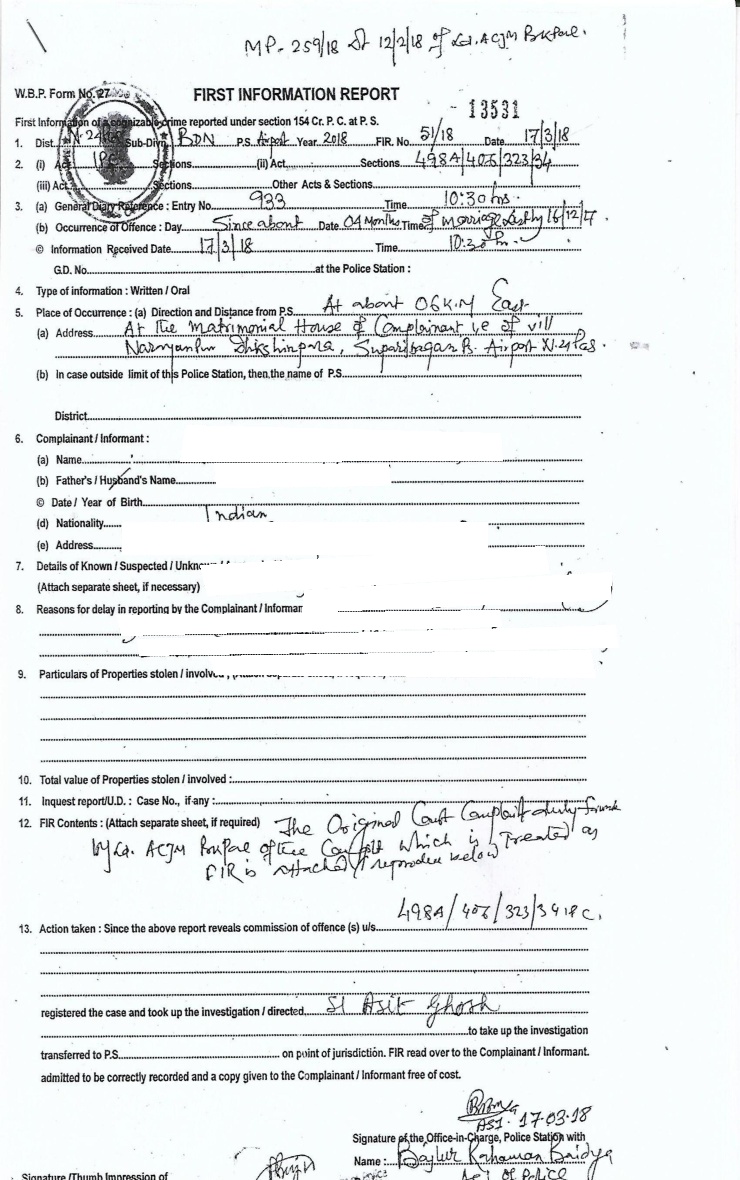 MP-259/18 Dt 12/2/18 of Ld. ACJM
W.B.P. Form No. 27
FIRST INFORMATION REPORT
13531
First Information of a cognizable crime reported under section 154 Cr. P. C. at P. S.
1. Dist. Sub-Divn. BDN P.S. Airport Year 2018 FIR. No. 51/18 Date 17/3/18
2. (i) Act IPC Sections (ii) Act Sections 498A/406/323/34
(iii) Act Sections Other Acts & Sections
3. (a) General Diary Reference : Entry No. 933 Time 10:30 hrs.
(b) Occurrence of Offence : Day Since about Date 04 Months Time of marriage
© Information Received Date 17/3/18 Time
G.D. No. at the Police Station :
4. Type of information : Written / Oral
5. Place of Occurrence : (a) Direction and Distance from P.S. At about 06 K.M East
(a) Address At the matrimonial House of Complainant i,e of vill
Airport
(b) In case outside limit of this Police Station, then the name of P.S.
District
6. Complainant / Informant :
(a) Name
(b) Father's / Husband's Name
© Date / Year of Birth
(d) Nationality Indian
(e) Address
7. Details of Known / Suspected /
(Attach separate sheet, if necessary)
8. Reasons for delay in reporting by the Complainant /
9. Particulars of Properties stolen /
10. Total value of Properties stolen / involved :
11. Inquest report/U.D. : Case No., if any :
12. FIR Contents : (Attach separate sheet, if required) The Original Court Complaint
by Ld. ACJM of the which is treated as
FIR is attached / below
13. Action taken : Since the above report reveals commission of offence (s) u/s. 498A/406/323/34 IPC.
registered the case and took up the investigation / directed SI Asit Ghosh
to take up the investigation
transferred to P.S. on point of jurisdiction. FIR read over to the Complainant / Informant.
admitted to be correctly recorded and a copy given to the Complainant / Informant free of cost.
ASI. 17-03-18
Signature of the Office-in-Charge, Police Station with
Name : Rahaman Baidya
Signature /Thumb Impression of
of Police